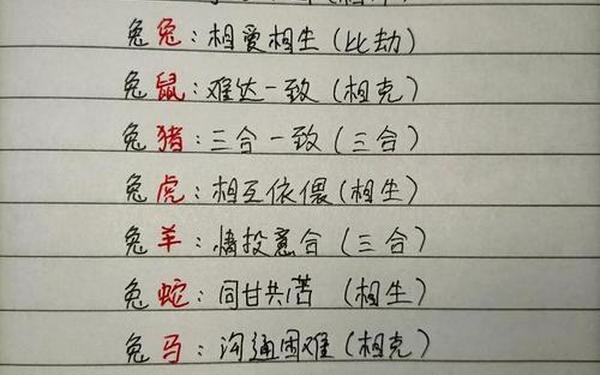 兔兔：相爱相生（比劫）
兔鼠：难达一致（相克）
兔猪：三合一致（三合）
兔虎：相互依偎（相生）
兔羊：情投意合（三合）
兔蛇：同甘共苦（相生）
兔马：沟通困难（相克）